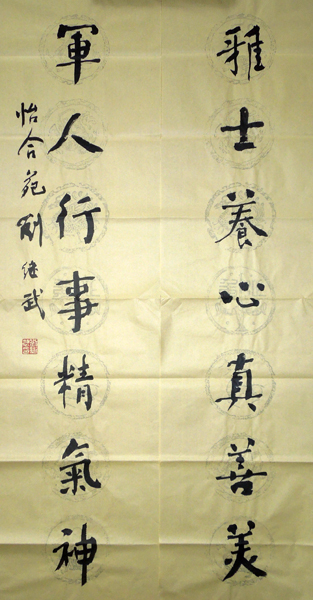 雅士養心真善美
軍人行事精氣神
怡合苑劉繼武